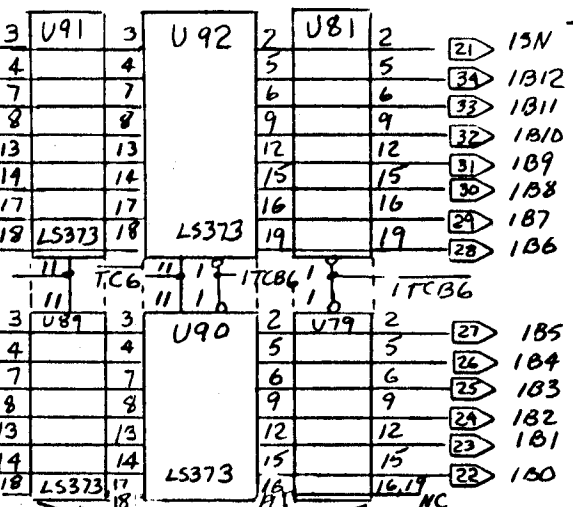 3 U91 3 U92 2 U81 2 21 1SN
4 4 5 5 34 1B12
7 7 6 6 33 1B11
8 8 9 9 32 1B10
13 13 12 12 31 1B9
14 14 15 15 30 1B8
17 17 16 16 29 1B7
18 LS373 18 LS373 19 19 28 1B6
11 TC6 11 1 1TCB6 1 1TCB6
11 11 1 1
3 U89 3 U90 2 U79 2 27 1B5
4 4 5 5 26 1B4
7 7 6 6 25 1B3
8 8 9 9 24 1B2
13 13 12 12 23 1B1
14 14 LS373 15 15 22 1B0
18 LS373 17 16 16,19
18 NC